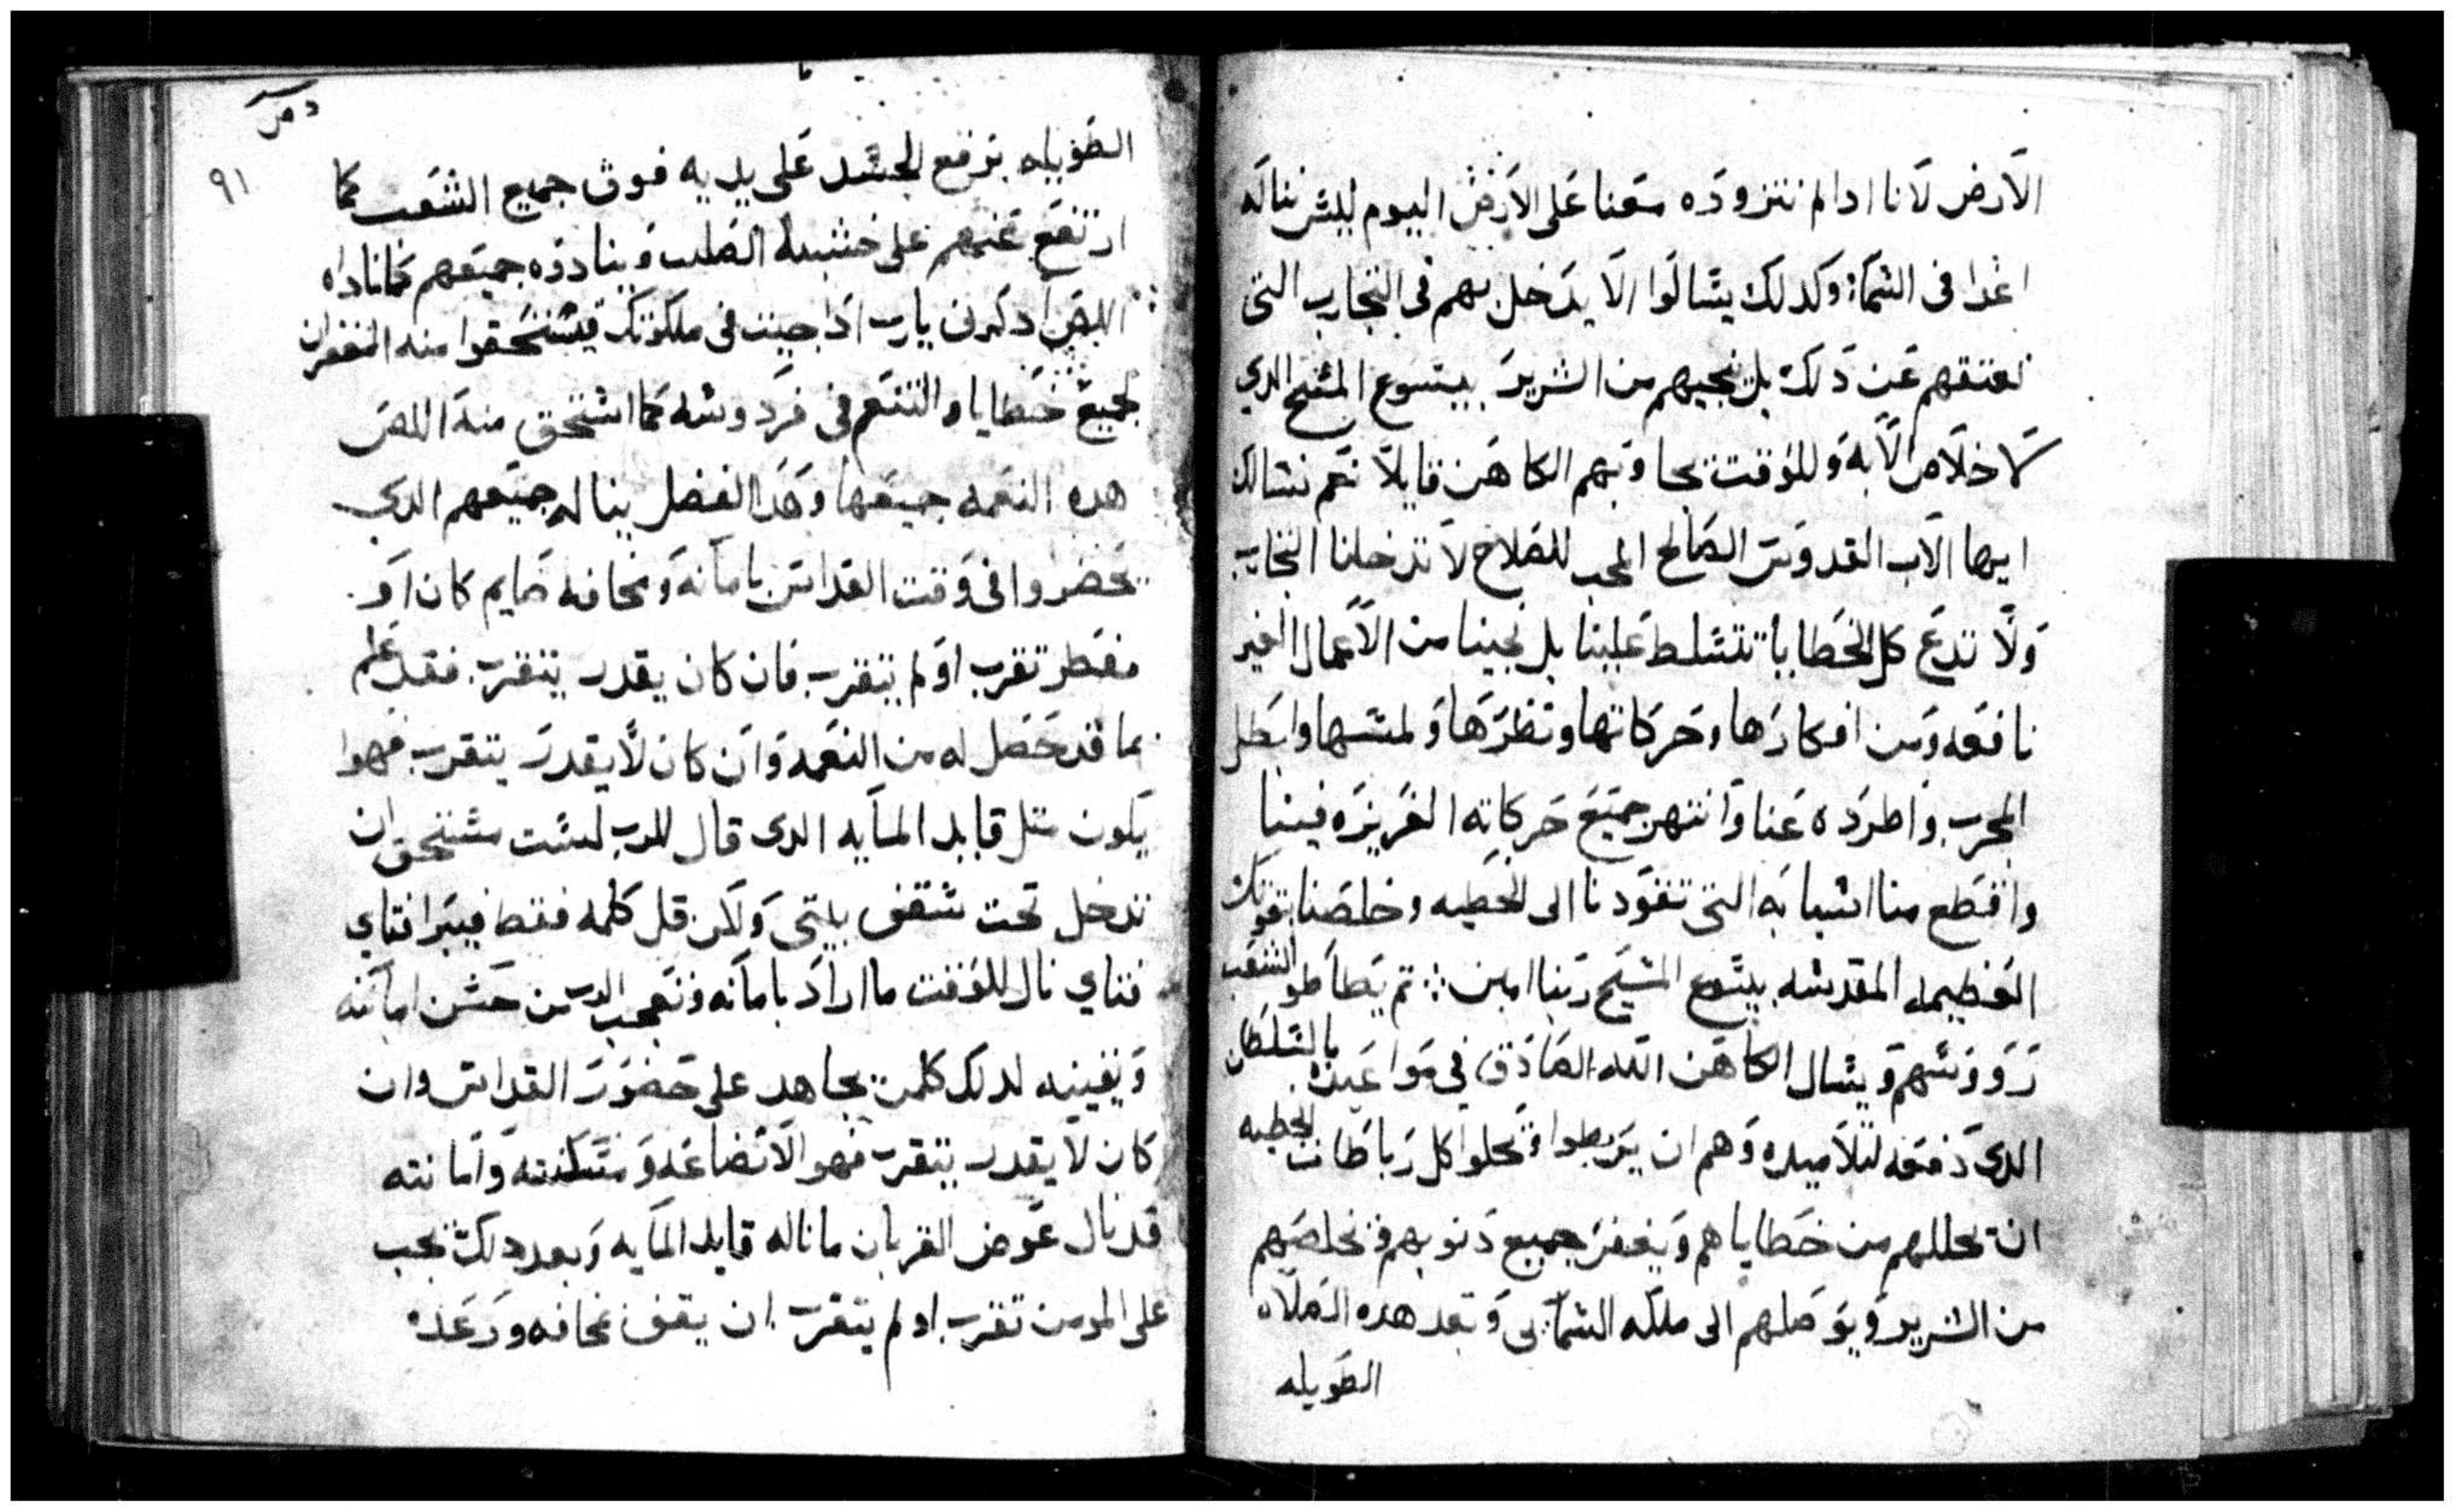 الارض لانا ادا لم نتزوده معنا على الارض اليوم ليس نناله
غدا في السما: وكدلك يسالوا الا يدخل بهم في التجارب التى
تعتقهم عن دلك بل ينجيهم من الشرير بيسوع المسيح الدي
لا خلاص الا به وللوقت يجاوبهم الكاهن قايلا نعم نسالك
ايها الاب القدوس الصالح المحب للصلاح لا تدخلنا التجارب
ولا تدع كل الخطايا تتسلط علينا بل نجينا من الاعمال الغير
نافعه ومن افكارها وحركاتها ونظرها ولمسها وابطل
المجرب واطرده عنا وانتهر جميع حركاته الغريزه فينا
واقطع منا اسبابه التى تقودنا الى الخطيه وخلصنا بقوتك
العظيمه المقدسه بيسوع المسيح ربنا امين ∴ تم يطاطو الشعب
رووسهم ويسال الكاهن الله الصادق في مواعيده بالسلطان
الدى دفعه لتلاميده وهم ان يربطوا ويحلوا كل رباطات الخطيه
ان يحللهم من خطاياهم ويغفر جميع دنوبهم ويخلصهم
من الشرير ويوصلهم الى ملكه السمايى وبعد هده الصلاه
الطويله
دمر
٩١
الطويله يرفع الجسد على يديه فوق جميع الشعب كما
ارتفع عنهم على خشبة الصلب وينادوه جميعهم كما ناداه
اللص ادكرنى يارب ادا جيت فى ملكوتك فيستحقوا منه الغفران
لجميع خطاياه والتنعم في فردوسه كما استحق منه اللص
هده النعمه جميعها وهدا الفضل يناله جميعهم الدي
يحضروا فى وقت القداس بامانه ومخافه صايم كان او
مفطر تقرب او لم يتقرب فان كان يقدر يتقرب فقد علم
بما قد حصل له من النعمه وان كان لا يقدر يتقرب فهوا
يكون متل قايد المايه الدى قال للرب لست مستحق ان
تدخل تحت سقف بيتى ولكن قل كلمه فقط فيبرا فتاي
فتاي نال للوقت ما اراد بامانه وتعجب الرب من حسن امانته
ويقينه لدلك كلمن يجاهد على حضور القداس وان
كان لا يقدر يتقرب فهو الاتضاعه ومسكنته وامانته
قد نال عوض القربان ما ناله قايد المايه وبعد دلك يجب
على المومن تقرب او لم يتقرب ان يقف بمخافه ورعده